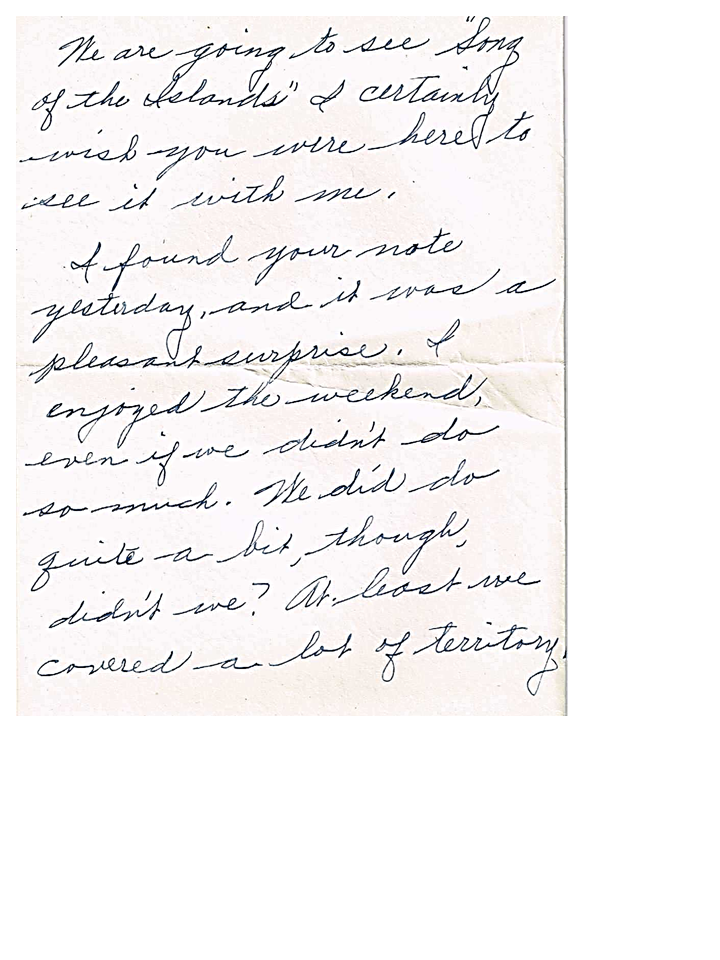 We are going to see "Song
of the Islands" I certainly
wish you were here to
see it with me.
I found your note
yesterday, and it was a
pleasant surprise. I
enjoyed the weekend,
even if we didn't do
so much. We did do
quite a bit, though,
didn't we? At least we
covered a lot of territory.